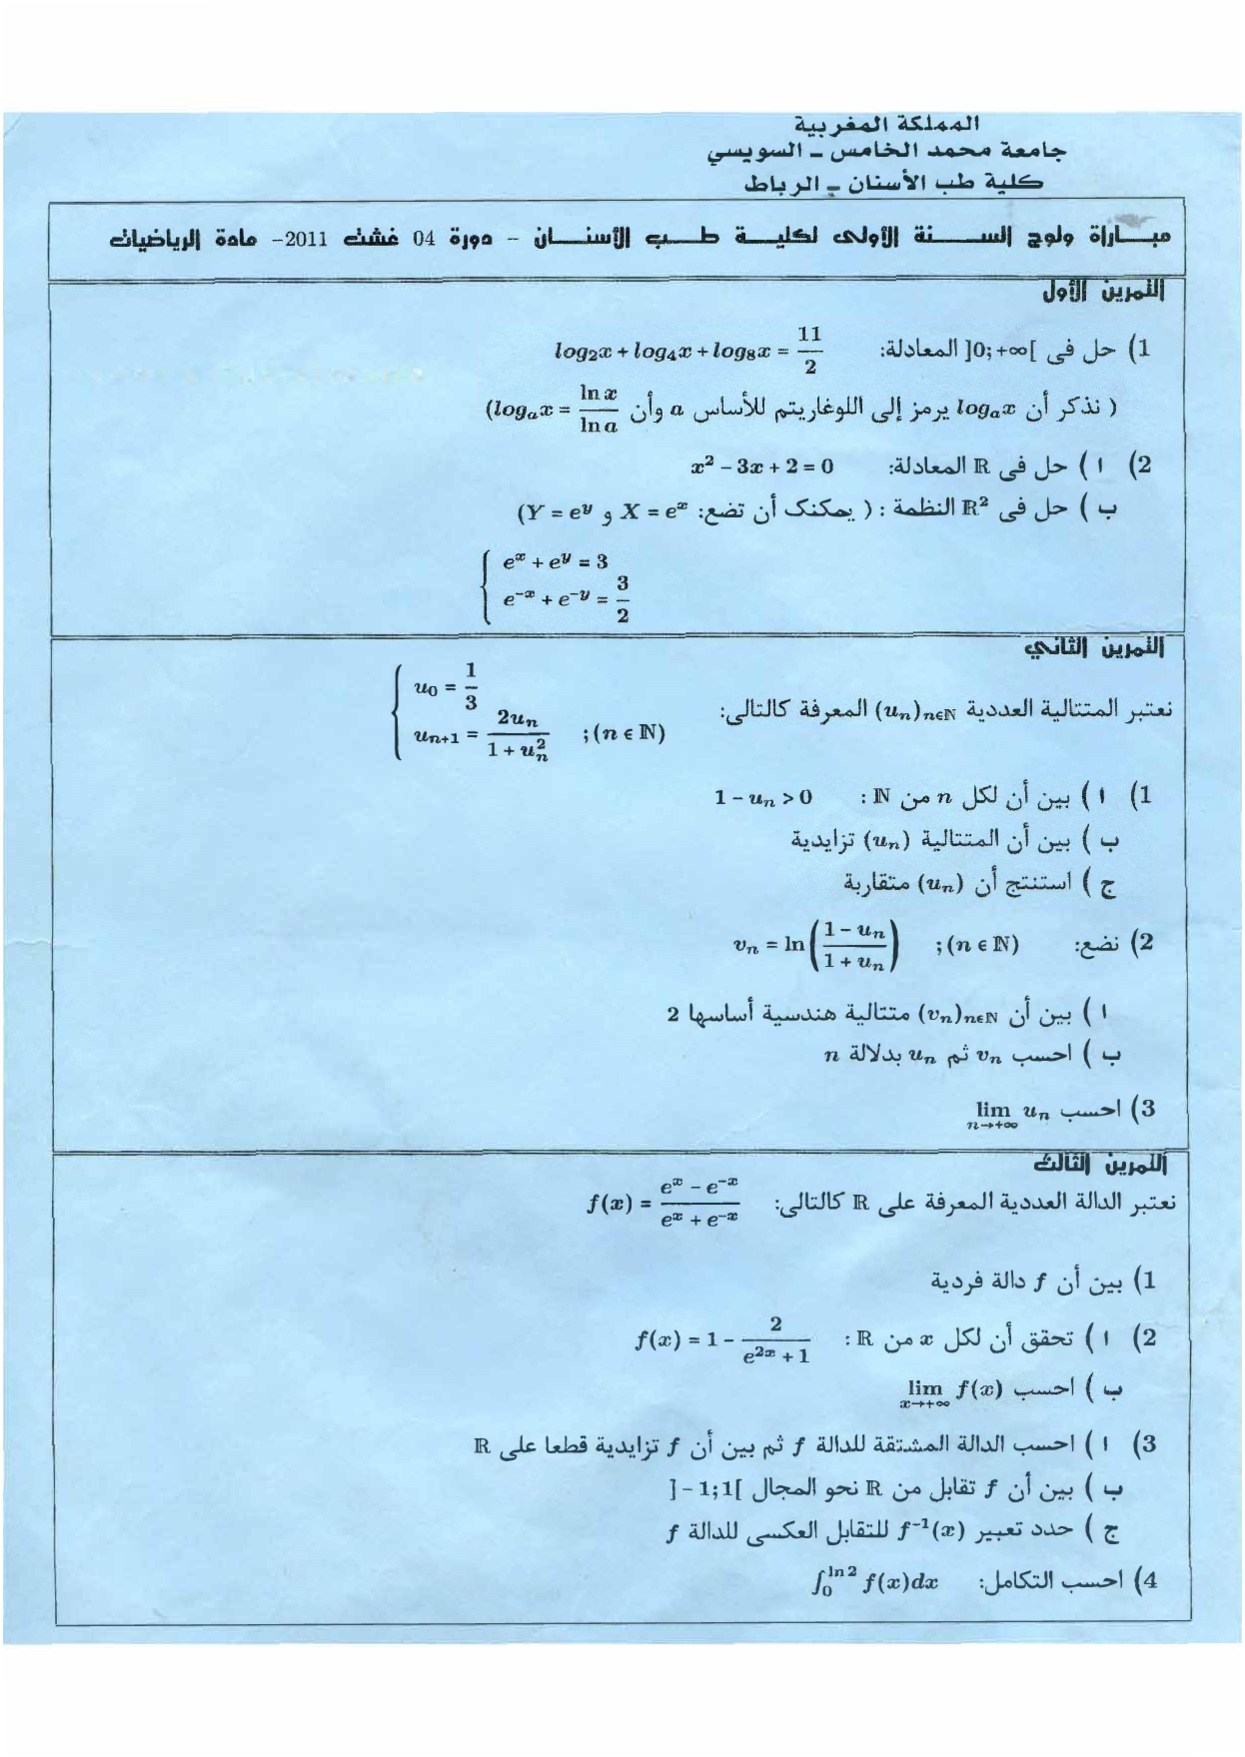 المملكة المغربية
جامعة محمد الخامس – السويسي
كلية طب الأسنان – الرباط
مباراة ولوج السنة الأولى لكلية طب الأسنان – دورة 04 غشت 2011- مادة الرياضيات
التمرين الأول
1) حل في ]0; +∞[ المعادلة: log₂x + log₄x + log₈x = 11/2
( نذكر أن logₐx يرمز إلى اللوغاريتم للأساس a وأن logₐx = ln x / ln a)
2) ا ) حل في ℝ المعادلة: x² – 3x + 2 = 0
ب ) حل في ℝ² النظمة : ( يمكنك أن تضع: X = eˣ و Y = eʸ)
{ eˣ + eʸ = 3
e⁻ˣ + e⁻ʸ = 3/2
التمرين الثاني
نعتبر المتتالية العددية (uₙ)ₙ∈ℕ المعرفة كالتالي:
{ u₀ = 1/3
uₙ₊₁ = 2uₙ / (1 + uₙ²) ; (n ∈ ℕ)
1) ا ) بين أن لكل n من ℕ : 1 – uₙ > 0
ب ) بين أن المتتالية (uₙ) تزايدية
ج ) استنتج أن (uₙ) متقاربة
2) نضع: vₙ = ln((1 – uₙ)/(1 + uₙ)) ; (n ∈ ℕ)
ا ) بين أن (vₙ)ₙ∈ℕ متتالية هندسية أساسها 2
ب ) احسب vₙ ثم uₙ بدلالة n
3) احسب lim uₙ n→+∞
التمرين الثالث
نعتبر الدالة العددية المعرفة على ℝ كالتالي: f(x) = (eˣ – e⁻ˣ)/(eˣ + e⁻ˣ)
1) بين أن f دالة فردية
2) ا ) تحقق أن لكل x من ℝ : f(x) = 1 – 2/(e²ˣ + 1)
ب ) احسب lim f(x) x→+∞
3) ا ) احسب الدالة المشتقة للدالة f ثم بين أن f تزايدية قطعا على ℝ
ب ) بين أن f تقابل من ℝ نحو المجال ]-1;1[
ج ) حدد تعبير f⁻¹(x) للتقابل العكسي للدالة f
4) احسب التكامل: ∫₀^(ln 2) f(x)dx